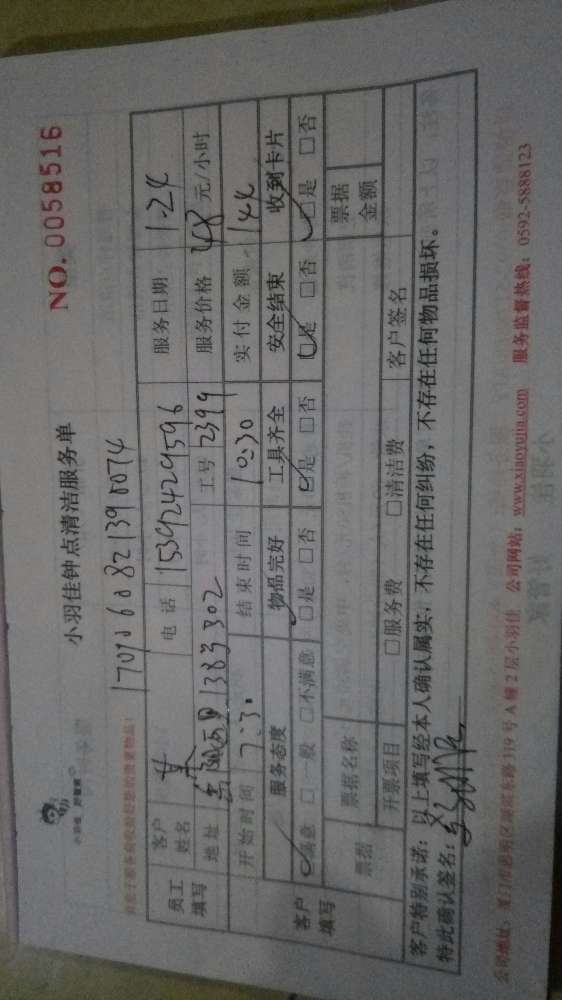 小羽佳 好管家
小羽佳钟点清洁服务单
NO. 0058516
1701060821390074
员工填写
客户姓名 黄 电话 15392429596 服务日期 1.24
地址 138号302 工号 2399 服务价格 48 元/小时
开始时间 7:30 结束时间 10:30 实付金额 144
客户填写
服务态度 物品完好 工具齐全 安全结束 收到卡片
☑满意 □一般 □不满意 □是 □否 ☑是 □否 ☑是 □否 ☑是 □否
票据 票据名称 票据金额
开票项目 □服务费 □清洁费 客户签名
客户特别承诺：以上填写经本人确认属实，不存在任何纠纷，不存在任何物品损坏。
特此确认签名：
公司地址：厦门市思明区湖滨东路319号A幢2层小羽佳 公司网站：www.xiaoyujia.com 服务监督热线：0592-5888123